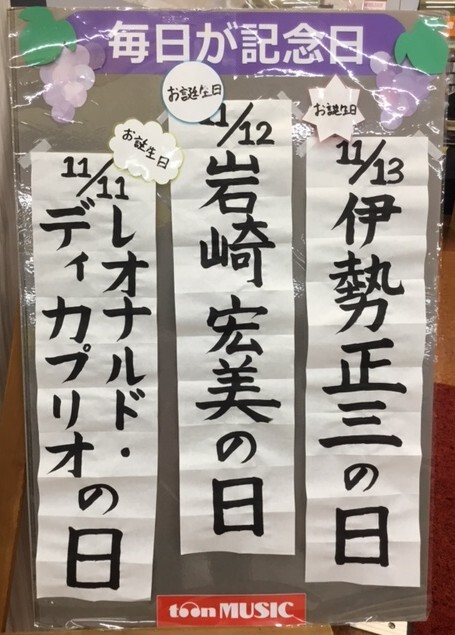 毎日が記念日
お誕生日
11/13
伊勢正三の日
お誕生日
1/12
岩崎宏美の日
お誕生日
11/11
レオナルド・
ディカプリオの日
toonMUSIC